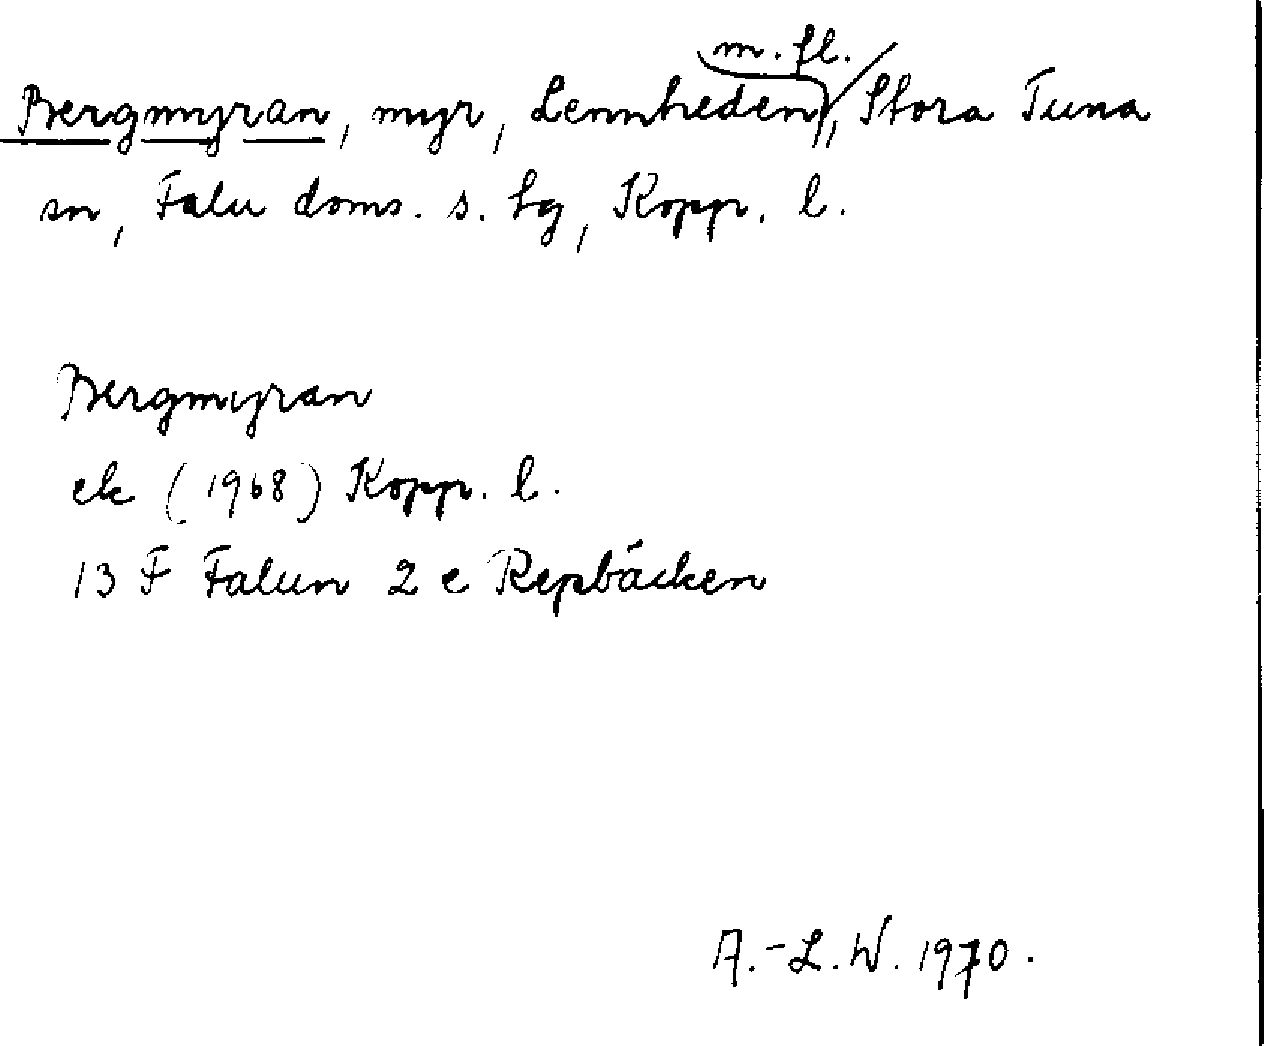 m. fl.
Bergmyran, myr, Lennheden, Stora Tuna
sn, Falu doms. s. tg, Kopp. l.
Bergmyran
ek (1968) Kopp. l.
13 F Falun 2 e Repbäcken
A.-L. W. 1970.